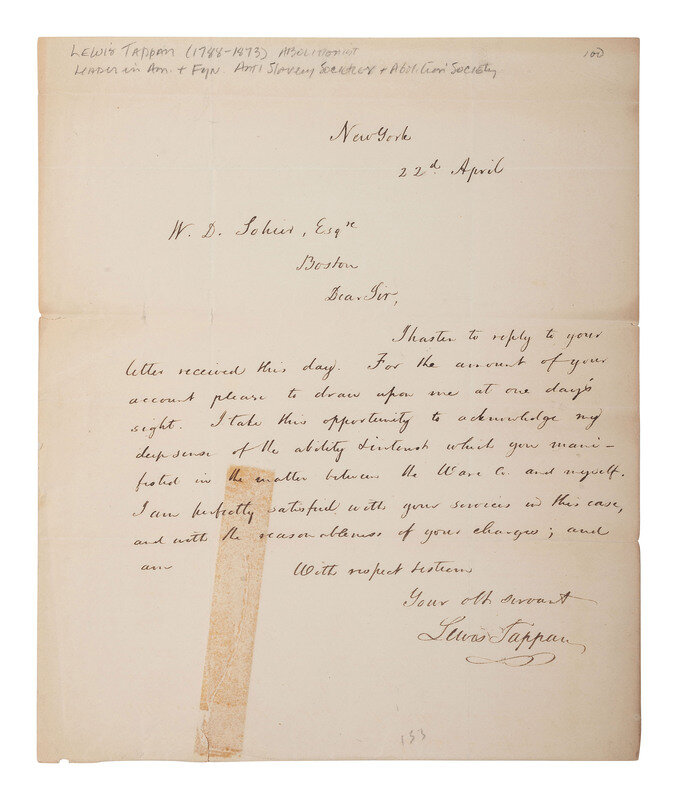 LEWIS TAPPAN (1788-1873) ABOLITIONIST
LEADER in Am. + Fgn. ANTI Slavery Societies + Abolition Society
100
New York
22d April
W. D. Sohier, Esqre
Boston
Dear Sir,
I hasten to reply to your
letter received this day. For the amount of your
account please to draw upon me at one day's
sight. I take this opportunity to acknowledge my
deep sense of the ability & interest which you mani-
fested in the matter between the Ware Co. and myself.
I am perfectly satisfied with your services in this case,
and with the reasonableness of your charges; and
am With respect & esteem
Your obt servant
Lewis Tappan
133